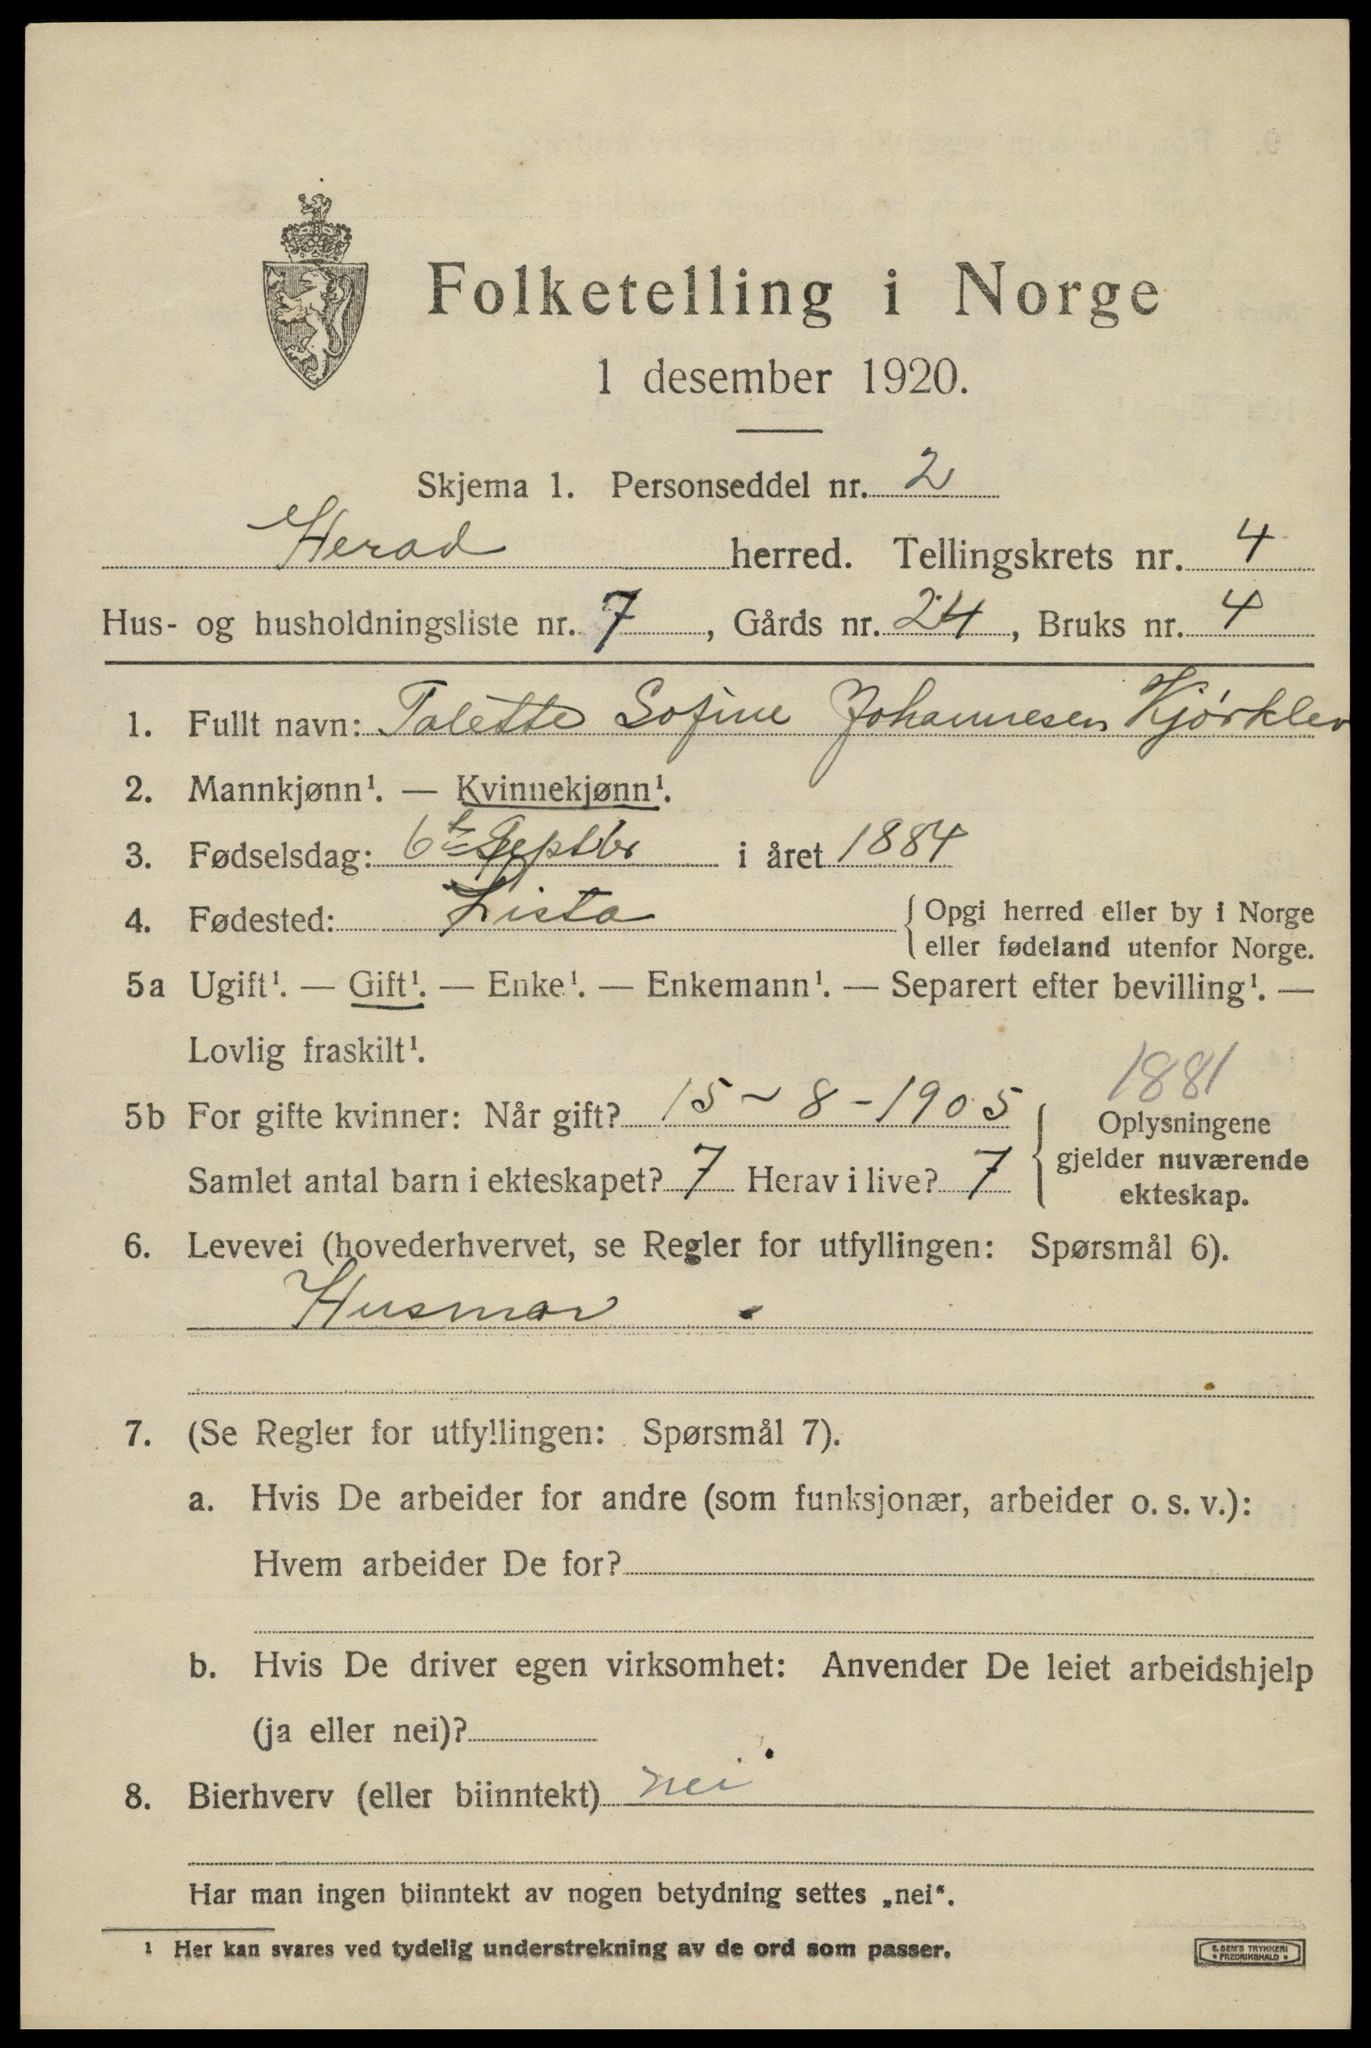 Folketelling i Norge
1 desember 1920.
Skjema 1. Personseddel nr. 2
Herad herred. Tellingskrets nr. 4
Hus- og husholdningsliste nr. 7, Gårds nr. 24, Bruks nr. 4
1. Fullt navn: Talette Sofine Johannesen Kjørklev
2. Mannkjønn¹. — Kvinnekjønn¹.
3. Fødselsdag: 6te Septbr i året 1884
4. Fødested: Lista { Opgi herred eller by i Norge
eller fødeland utenfor Norge.
5a Ugift¹. — Gift¹. — Enke¹. — Enkemann¹. — Separert efter bevilling¹. —
Lovlig fraskilt¹.
1881
5b For gifte kvinner: Når gift? 15 - 8 - 1905 { Oplysningene
gjelder nuværende
ekteskap.
Samlet antal barn i ekteskapet? 7 Herav i live? 7
6. Levevei (hovederhvervet, se Regler for utfyllingen: Spørsmål 6).
Husmor
7. (Se Regler for utfyllingen: Spørsmål 7).
a. Hvis De arbeider for andre (som funksjonær, arbeider o. s. v.):
Hvem arbeider De for?
b. Hvis De driver egen virksomhet: Anvender De leiet arbeidshjelp
(ja eller nei)?
8. Bierhverv (eller biinntekt) nei
Har man ingen biinntekt av nogen betydning settes „nei“.
¹ Her kan svares ved tydelig understrekning av de ord som passer.
E. SEM'S TRYKKERI
• FREDRIKSHALD •